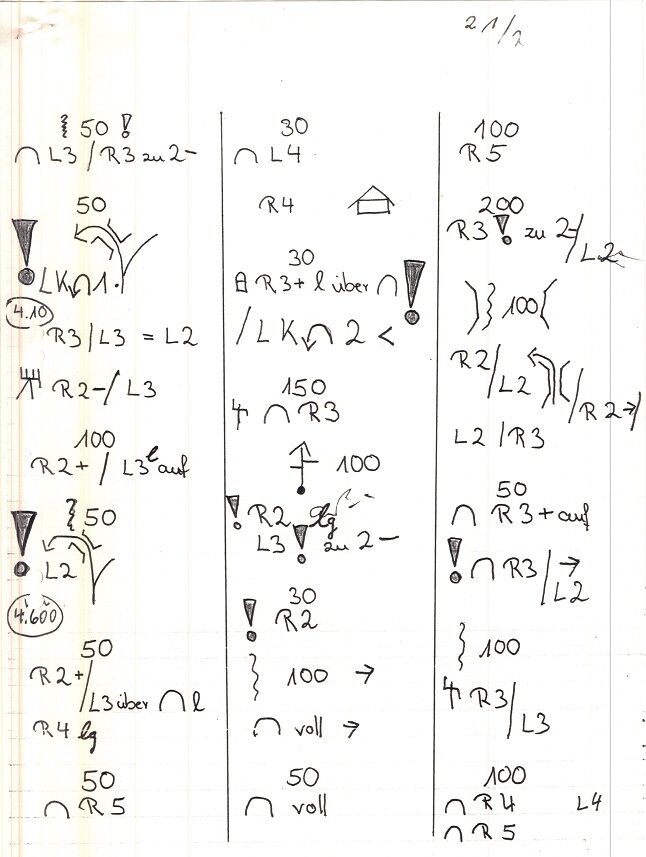 21/2
50 !
∩ L3 / R3 zu 2-
50
! LK ∩ 1.
4.10
R3/L3 = L2
R2-/L3
100
R2+ / L3 l auf
50
! L2
4.600
50
R2+/L3 über ∩ l
R4 lg
50
∩ R5
30
∩ L4
R4
30
R3+ l über ∩ !
/LK ∩ 2 <
150
∩ R3
100
! R2 lg
L3 ! zu 2-
30
! R2
100 →
∩ voll →
50
∩ voll
100
R5
200
R3 ! zu 2-/L2-
100
R2/L2 (/R2→/
L2/R3
50
∩ R3+ auf
! ∩ R3/→L2
100
R3/L3
100
∩ R4 L4
∩ R5